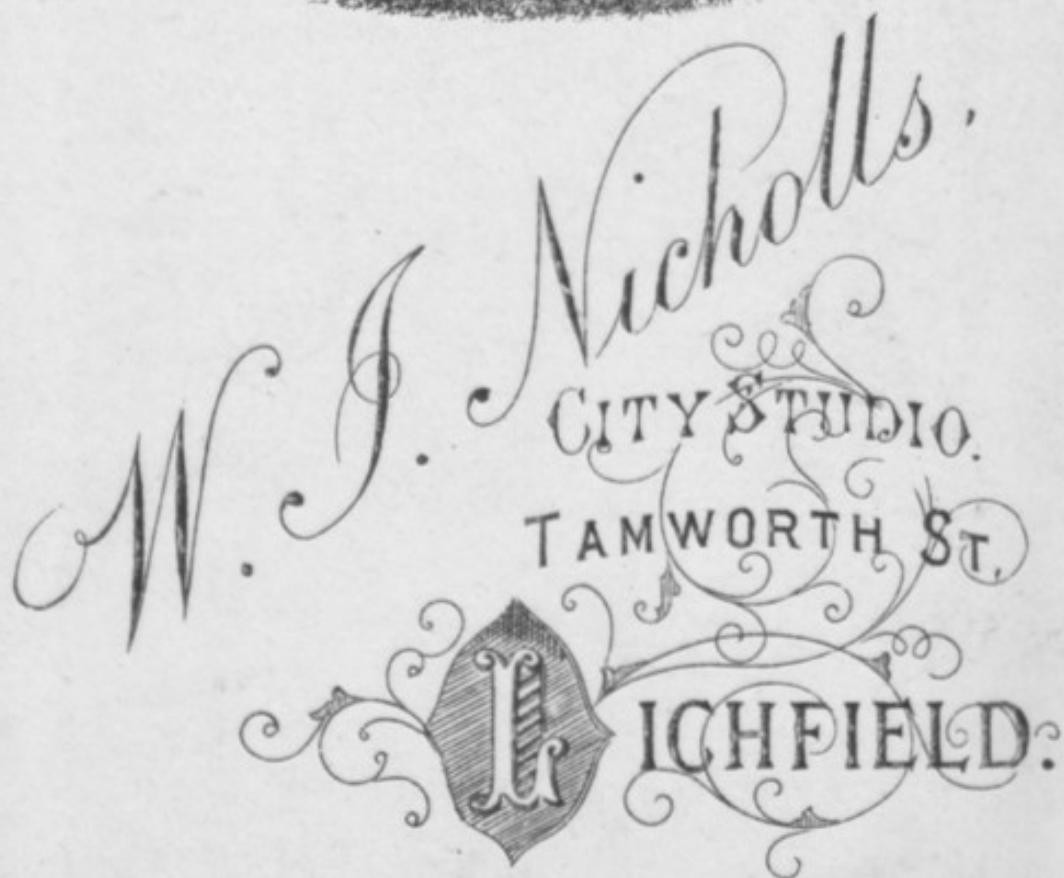 W. J. Nicholls.
CITY STUDIO.
TAMWORTH ST,
LICHFIELD.